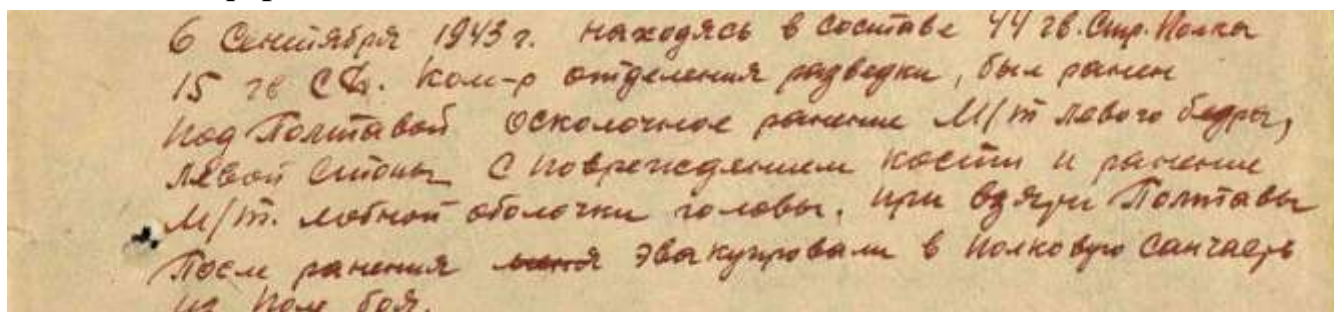 6 Сентября 1943 г. находясь в составе 44 гв. Стр. Полка
15 гв СД. Ком-р отделения разведки, был ранен
под Полтавой осколочное ранение М/т левого бедра,
левой стопы с повреждением кости и ранение
М/т. лобной оболочки головы. при взятии Полтавы
После ранения эвакуировали в полковую санчасть
из поле боя.